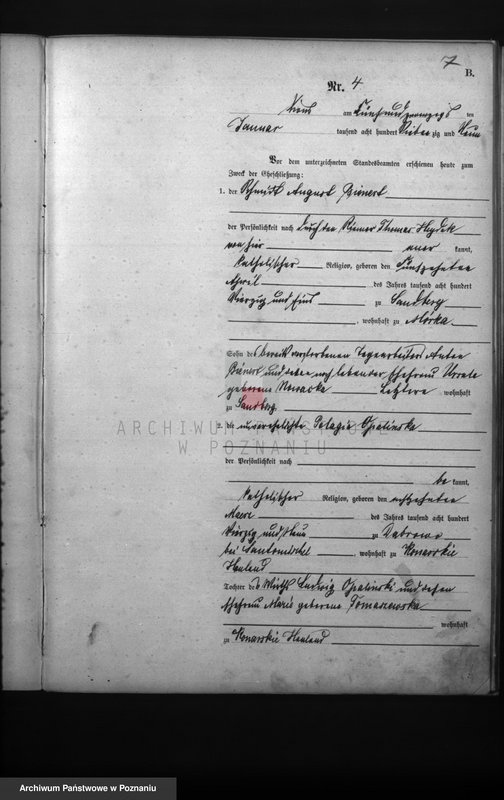 7
B.
Nr. 4
am Fünfundzwanzigs ten
Januar tausend acht hundert Sieben zig und Neun
Vor dem unterzeichneten Standesbeamten erschienen heute zum
Zweck der Eheschließung:
1. der Schmidt August Bienert
der Persönlichkeit nach durch den Thomas Heydek
von hier aner kannt,
katholischer Religion, geboren den Fünfzehnten
April des Jahres tausend acht hundert
Vierzig und Eins zu Sandberg
, wohnhaft zu Mórka
Sohn des bereits verstorbenen Tagearbeiters Anton
Bienert und dessen noch lebender Ehefrau
geborene Nowacka Letztere wohnhaft
zu Sandberg.
ARCHIWUM PAŃSTWOWE
W POZNANIU
2. die unverehelichte Pelagia Opalinska
der Persönlichkeit nach
be kannt,
katholischer Religion, geboren den achtzehnten
Maerz des Jahres tausend acht hundert
Vierzig und Neun zu Dabrowo
bei Santomischel, wohnhaft zu Konarskie
Hauland
Tochter des Wirths Ludwig Opalinski und dessen
Ehefrau Marie geborene Tomaszewska
wohnhaft
zu Konarskie Hauland
Archiwum Państwowe w Poznaniu